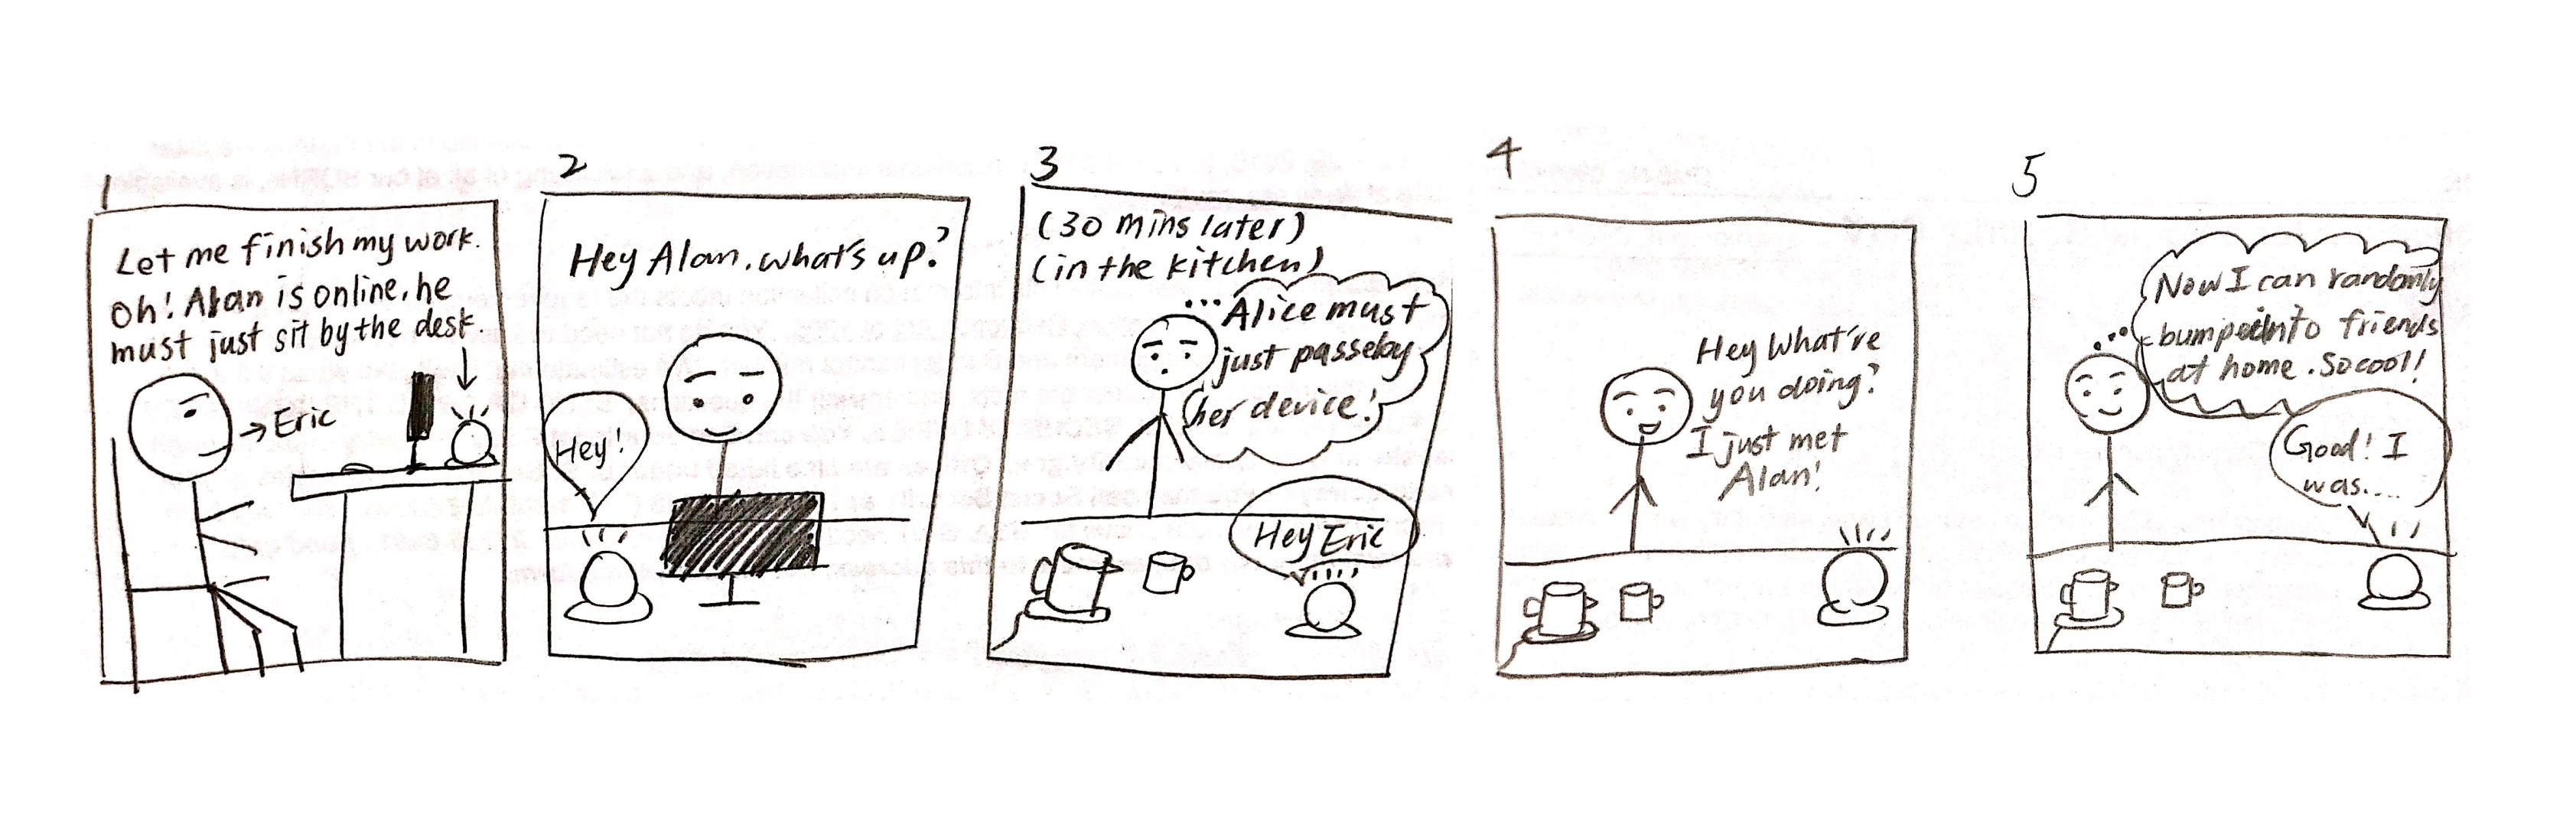 1
Let me finish my work.
Oh! Alan is online, he
must just sit by the desk.
Eric
2
Hey Alan, what's up?
Hey!
3
(30 mins later)
(in the kitchen)
... Alice must
just passeby
her device!
Hey Eric
4
Hey What're
you doing?
I just met
Alan!
5
Now I can randomly
into friends
at home. So cool!
Good! I
was....